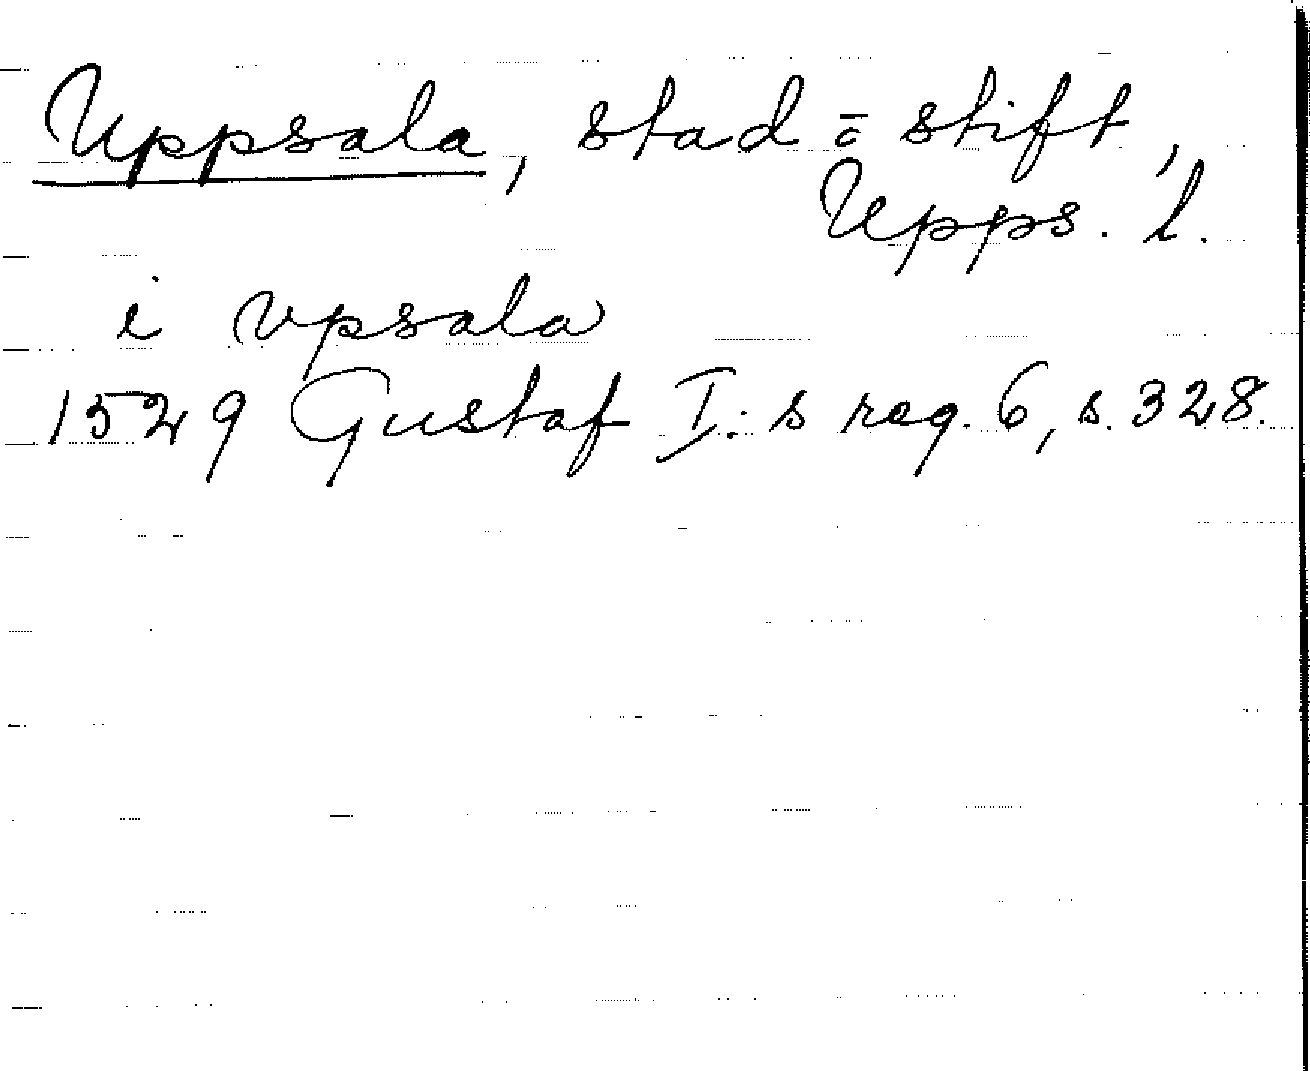 Uppsala, stad o stift,
Upps. l.
i vpsala
1529 Gustaf I:s reg. 6, s. 328.